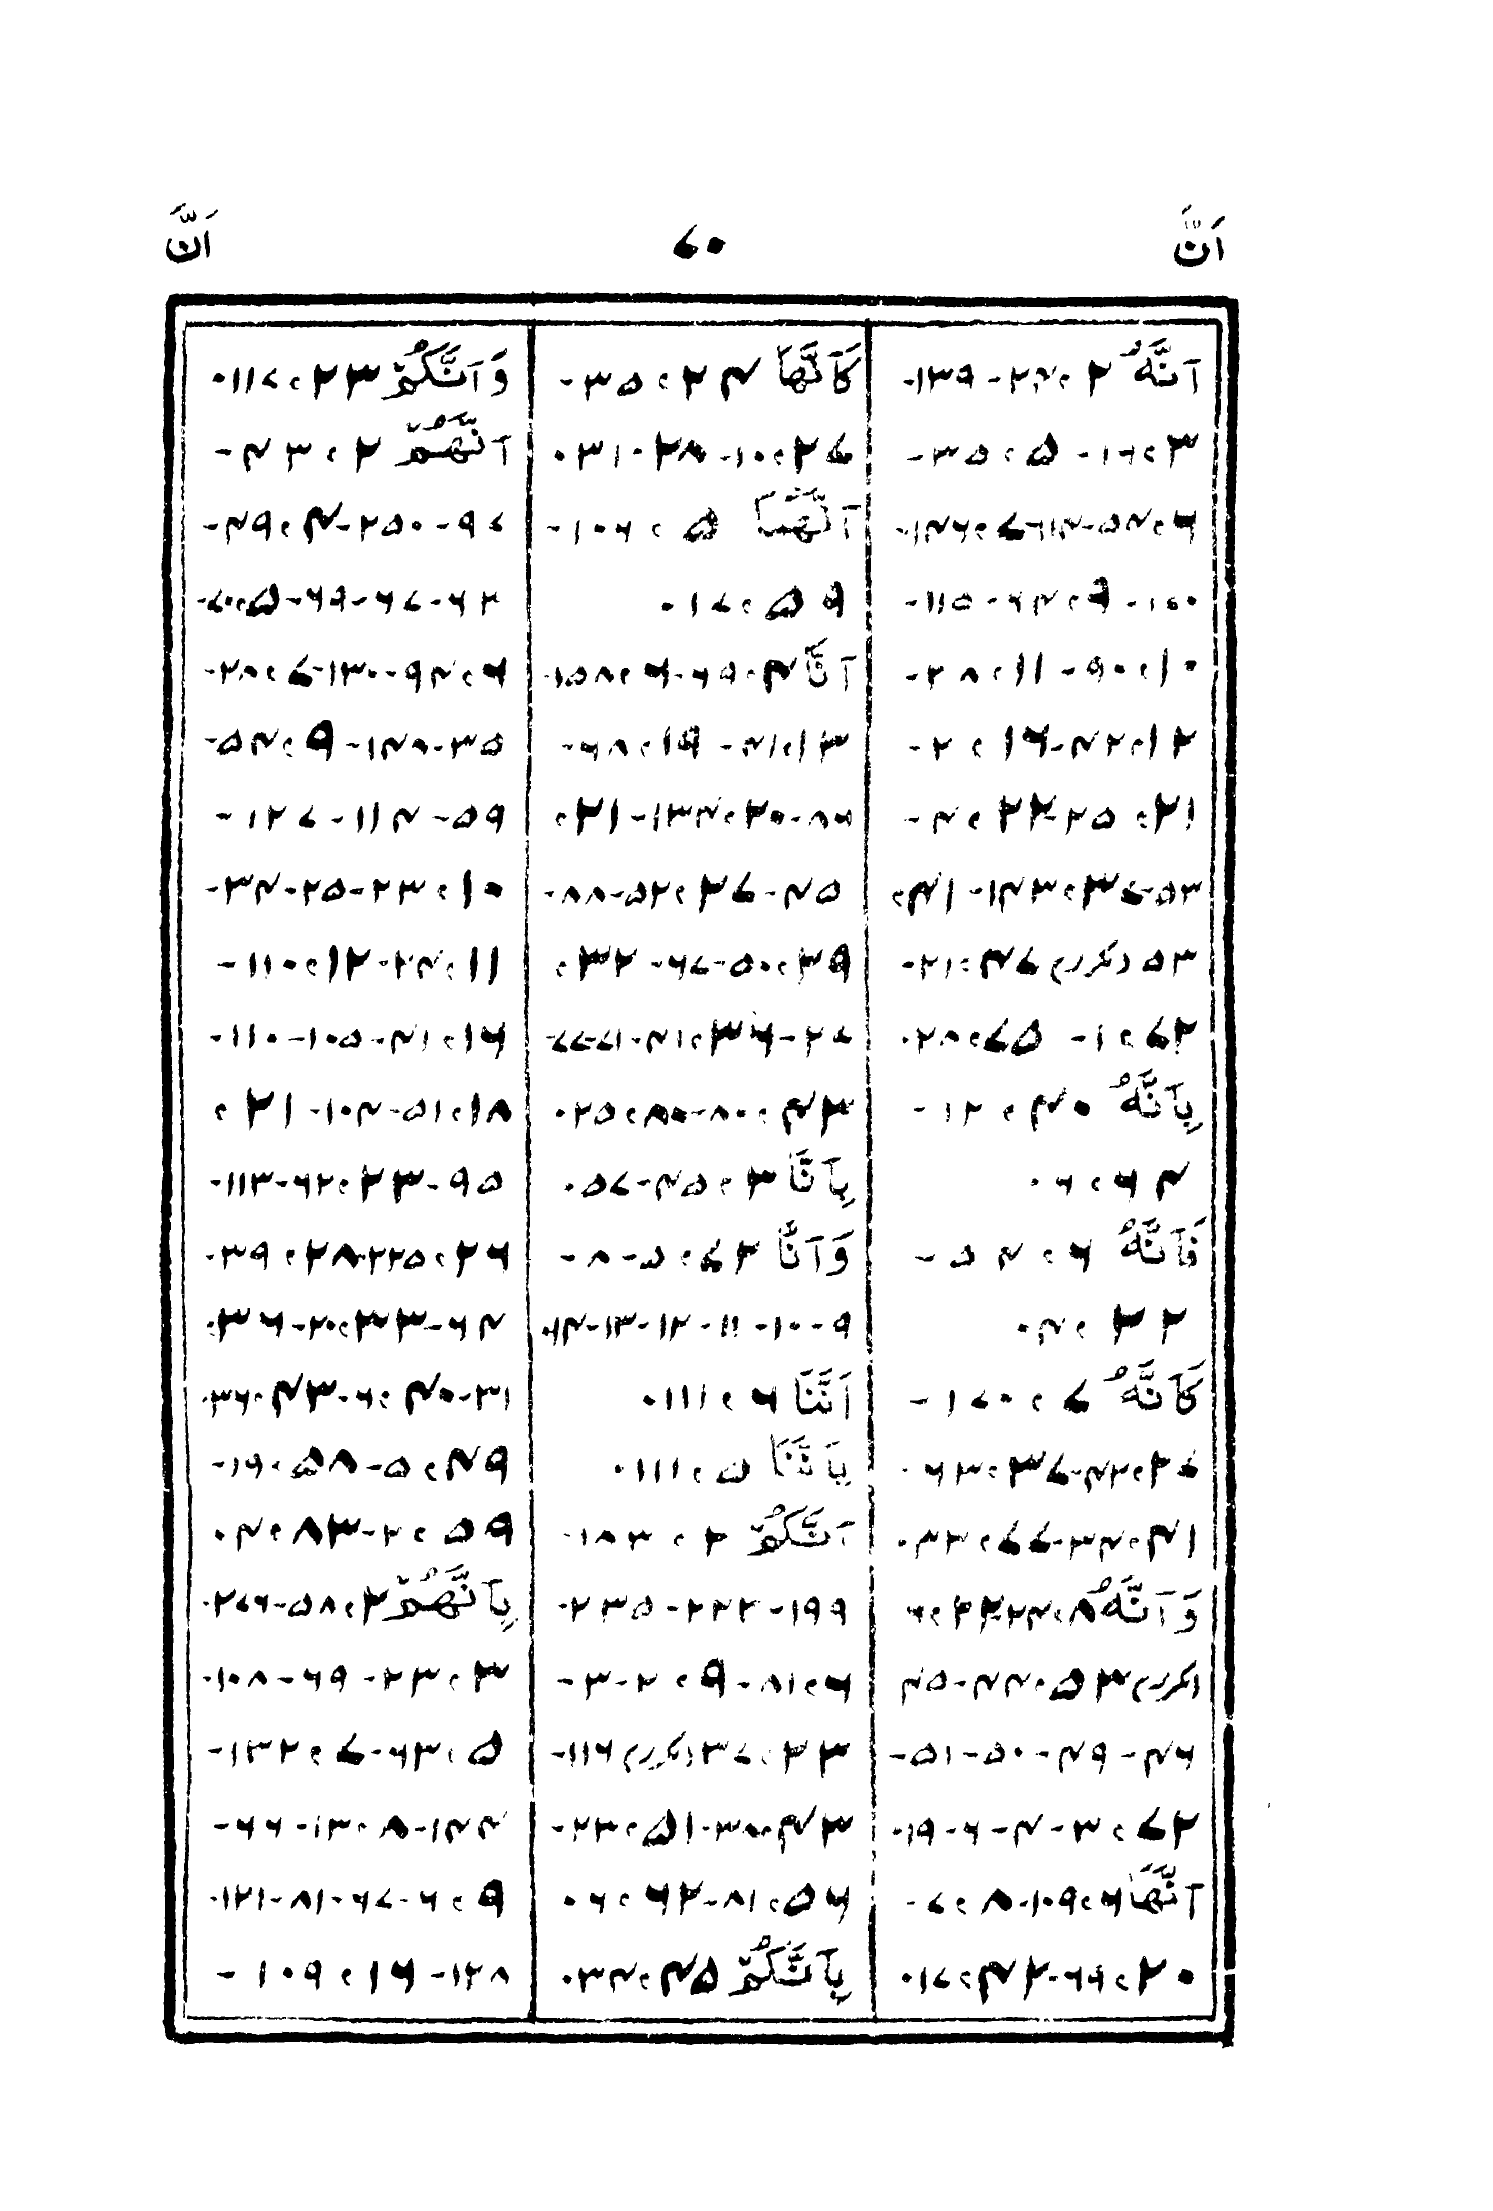 اَنَّ ۷۰ اَنَّ
اَنَّهٗ ۲؛ ۲۴- ۱۳۹-
۳؛ ۱۶- ۵؛ ۳۵-
۶؛ ۵۴-۱۱۴-۷؛ ۱۴۶-
۱۵۰- ۹؛ ۶۴- ۱۱۵-
۱۰؛ ۹۰- ۱۱؛ ۳۸-
۱۲؛ ۴۲-۱۶؛ ۲-
۲۱؛ ۲۵-۲۲؛ ۴-
۵۳-۳۷؛ ۱۴۳- ۴۱؛
۵۳ (مکرر) ۴۷؛ ۲۱-
۷۲؛ ۱- ۷۵؛ ۲۸۰
بِاَنَّهٗ ۴۰؛ ۱۲-
۶۴؛ ۶۰
فَاَنَّهٗ ۶؛ ۵۴-
۲۲؛ ۴۰
كَاَنَّهٗ ۷؛ ۱۷۰-
۲۷؛ ۴۲-۳۷؛ ۶۳۰
۴۱؛ ۳۴-۷۷؛ ۳۳۰
وَاَنَّهٗ ۸؛ ۲۴-۲۲؛ ۶
(مکرر) ۵۳؛ ۴۴-۴۵
۴۶-۴۹-۵۰-۵۱-
۷۲؛ ۳-۴-۶-۱۹۰
اَنَّهَا ۶؛ ۱۰۹-۸؛ ۷-
۲۰؛ ۶۹-۴۲؛ ۱۷۰
كَاَنَّهَا ۲۴؛ ۳۵-
۲۷؛ ۱۰-۲۸؛ ۳۱۰
اَنَّهُمَا ۵؛ ۱۰۶-
۵۹؛ ۱۷۰
اَنَّا ۴؛ ۶۹-۶؛ ۱۵۸-
۱۳؛ ۴۱-۱۹؛ ۶۸-
۸۶-۲۰؛ ۱۳۴-۲۱؛
۴۵-۲۷؛ ۵۲-۸۸-
۲۹؛ ۵۰-۶۷-۳۲؛
۲۷-۳۶؛ ۴۱-۷۱-۷۷-
۴۳؛ ۸۰-۸۰؛ ۲۵۰
بِاَنَّا ۳؛ ۴۵-۵۷۰
وَاَنَّا ۷۲؛ ۵-۸-
۹-۱۰-۱۱-۱۲-۱۳-۱۴۰
اَنَّنَا ۶؛ ۱۱۱۰
بِاَنَّنَا ۵؛ ۱۱۱۰
اَنَّكُمْ ۲؛ ۱۸۳-
۱۹۹-۲۲۳-۲۳۵-
۶؛ ۸۱-۹؛ ۲-۳-
۲۳؛ ۳۷ (مکرر) ۱۱۶-
۴۳؛ ۳۸-۵۱؛ ۲۳-
۵۶؛ ۸۱-۶۲؛ ۶۰
بِاَنَّكُمْ ۴۵؛ ۳۴۰
وَاَنَّكُمْ ۲۳؛ ۱۱۷۰
اَنَّهُمْ ۲؛ ۴۳-
۹۷-۲۵۰-۴؛ ۴۹-
۶۲-۶۷-۶۹-۵؛ ۷۰-
۶؛ ۹۴-۱۳۰-۷؛ ۲۸-
۳۵-۱۴۸-۹؛ ۵۴-
۵۹-۱۱۴-۱۲۷-
۱۰؛ ۲۳-۲۵-۳۴-
۱۱؛ ۲۴-۱۲؛ ۱۱۰-
۱۶؛ ۴۱-۱۰۵-۱۱۰-
۱۸؛ ۵۱-۱۰۴-۲۱؛
۹۵-۲۳؛ ۶۲-۱۱۳-
۲۶؛ ۲۲۵-۲۸؛ ۳۹-
۶۴-۳۳؛ ۲۰-۳۶؛
۳۱-۴۰؛ ۶-۴۳؛ ۳۶۰
۴۹؛ ۵-۵۸؛ ۱۹-
۵۹؛ ۲-۸۳؛ ۴۰
بِاَنَّهُمْ ۲؛ ۵۸-۲۷۶-
۳؛ ۲۳-۶۹-۱۰۸-
۵؛ ۶۳-۷؛ ۱۳۲-
۱۴۴-۸؛ ۱۳-۶۶-
۹؛ ۶-۶۷-۸۱-۱۲۱-
۱۲۸-۱۶؛ ۱۰۹-